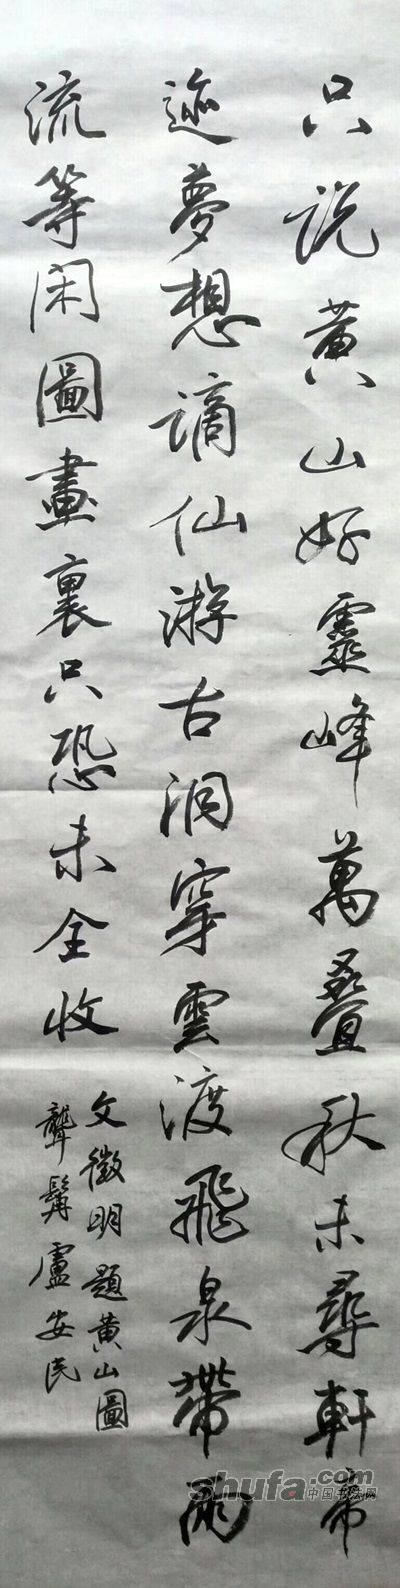 只说黄山好靈峰萬疊秋未尋軒帝
迹夢想谪仙游古洞穿雲渡飛泉帶雨
流等闲圖畫裏只恐未全收
文徵明題黄山圖
聾髯盧安民
shufa.com
中国书法网